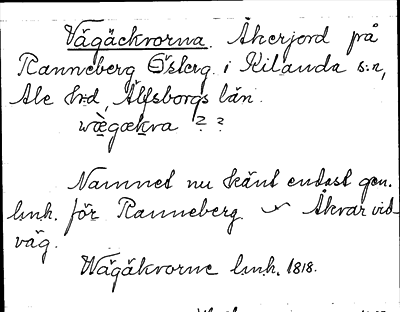 Vägäckrorna. Åkerjord på
Ranneberg Österg. i Kilanda s:n,
Ale h:d, Älfsborgs län.
wægækra ? ?
Namnet nu känt endast gen.
lmh. för Ranneberg. Åkrar vid
väg.
Wägäkrorne lmh. 1818.